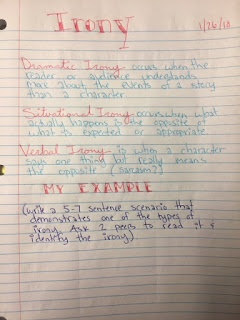 Irony
1/26/18
Dramatic Irony occurs when the
reader or audience understands
more about the events of a story
than a character
Situational Irony occurs when what
actually happens is the opposite of
what is expected or appropriate.
Verbal Irony is when a character
says one thing but really means
the opposite (sarcasm?)
MY EXAMPLE
(write a 5-7 sentence scenario that
demonstrates one of the types of
irony. Ask 2 peers to read it &
identify the irony)